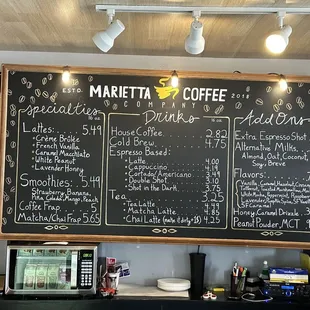 MARIETTA COFFEE
COMPANY
ESTD.
Specialties
16 oz
Lattes: 5.49
- Crème Brûlée
- French Vanilla
- Caramel Macchiato
- White Peanut
- Lavender Honey
Smoothies: 5.49
Strawberry, Banana,
Piña Colada, Mango, Peach
Coffee Frap. 5
Matcha/Chai Frap 5.65
Drinks
House Coffee 2.82
Cold Brew 4.75
Espresso Based:
- Latte 4.00
- Cappuccino
- Cortado/Americano
- Double Shot
- Shot in the Dark 3.75
Tea 3.25
- Tea Latte 4.49
- Matcha Latte 4.85
- Chai Latte 4.25
Add Ons:
Extra Espresso Shot
Alternative Milks
Almond, Oat, Coconut,
Soy, Breve
Flavors:
Honey, Caramel Drizzle
Peanut Powder, MCT